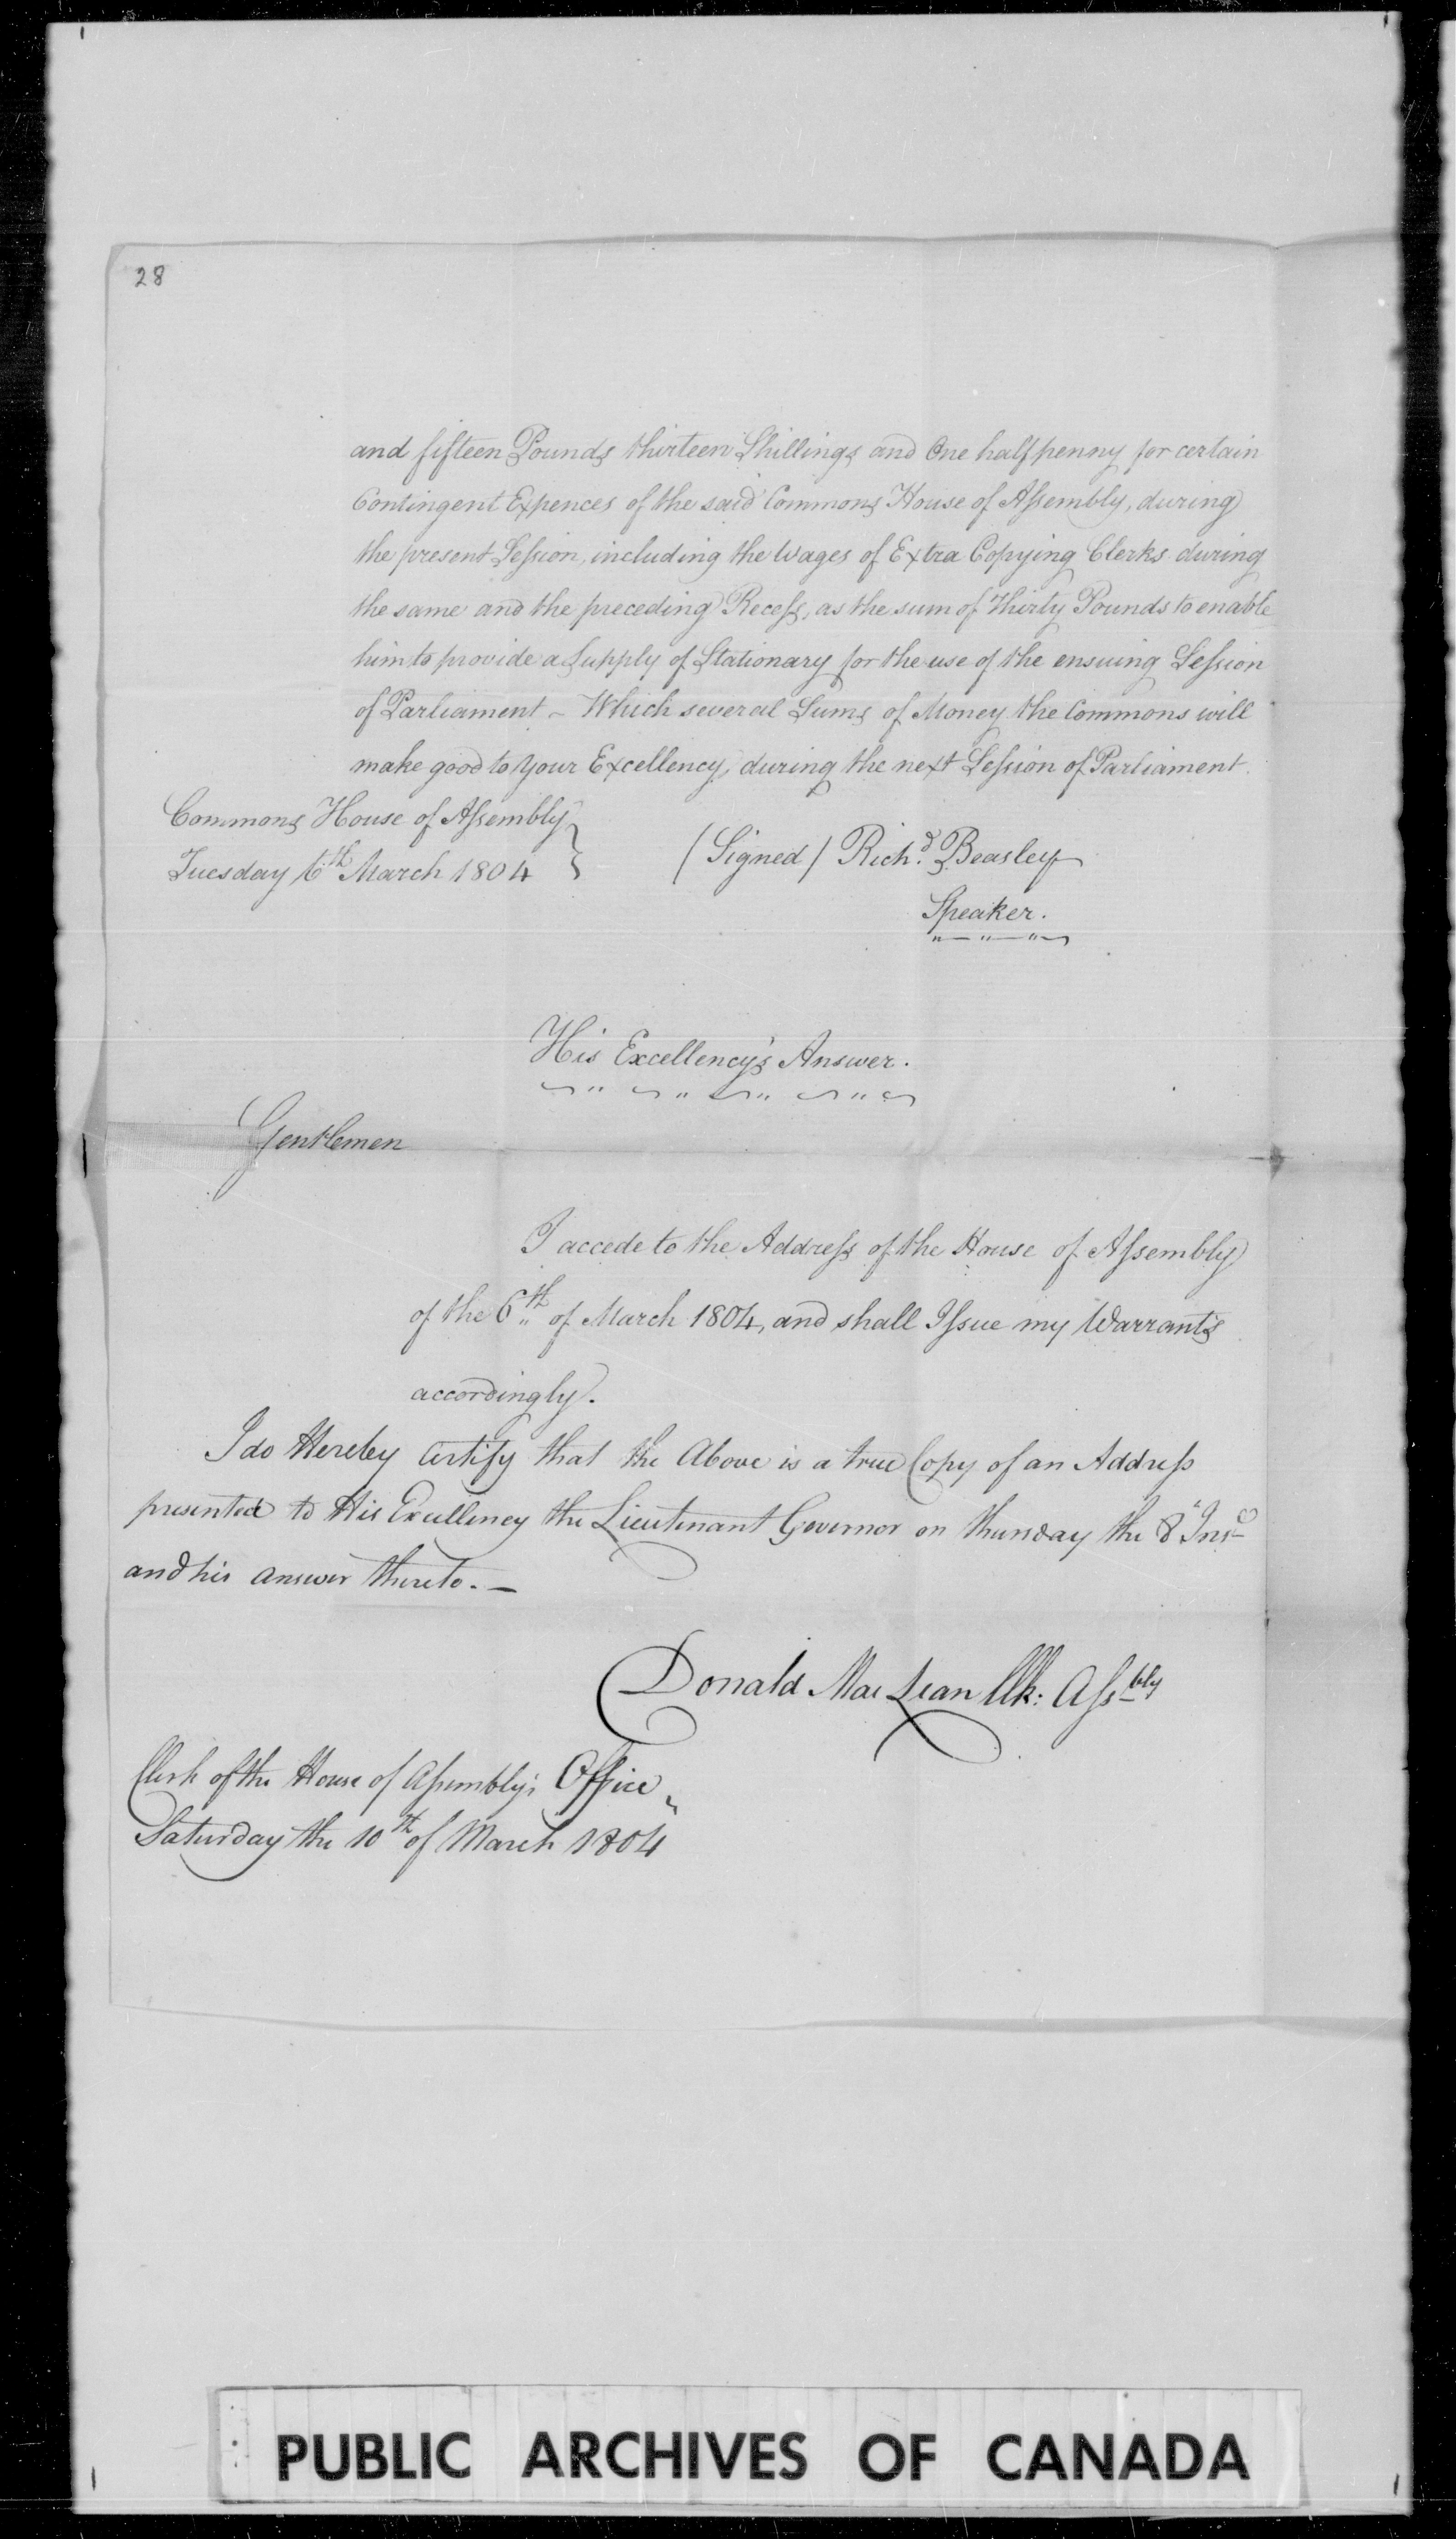 28
and fifteen Pounds thirteen Shillings and One halfpenny for certain
Contingent Expences of the said Commons House of Assembly, during
the present Session, including the Wages of Extra Copying Clerks during
the same and the preceding Recess, as the sum of Thirty Pounds to enable
him to provide a Supply of Stationary for the use of the ensuing Session
of Parliament - Which several Sums of Money the Commons will
make good to Your Excellency, during the next Session of Parliament.
Commons House of Assembly
Tuesday 6th March 1804
(Signed) Richd. Beasley
Speaker.
His Excellency's Answer.
Gentlemen
I accede to the Address of the House of Assembly
of the 6th of March 1804, and shall Issue my Warrants
accordingly.
I do Hereby Certify that the Above is a true Copy of an Address
presented to His Excellency the Lieutenant Governor on thursday the 8" Inst
and his answer thereto. —
Donald MacLean Clk: Assbly
Clerk of the House of Assembly's Office,
Saturday the 10th of March 1804
PUBLIC ARCHIVES OF CANADA